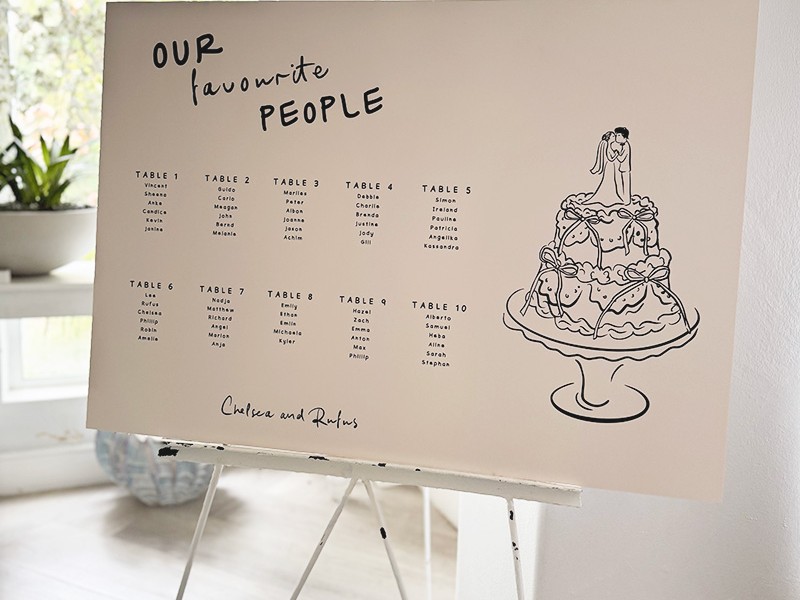 OUR
favourite
PEOPLE
TABLE 1
Vincent
Sheena
Anke
Candice
Kevin
Janine
TABLE 2
Guido
Carlo
Meagan
John
Bernd
Melanie
TABLE 3
Marlies
Peter
Alban
Joanne
Jason
Achim
TABLE 4
Debbie
Charlie
Brenda
Justine
Jody
Gill
TABLE 5
Simon
Ireland
Pauline
Patricia
Angelika
Kassandra
TABLE 6
Lee
Rufus
Chelsea
Phillip
Robin
Amelie
TABLE 7
Nadja
Matthew
Richard
Angel
Marlon
Anja
TABLE 8
Emily
Ethan
Emlin
Michaela
Kyler
TABLE 9
Hazel
Zach
Emma
Anton
Max
Phillip
TABLE 10
Alberto
Samuel
Heba
Aline
Sarah
Stephan
Chelsea and Rufus